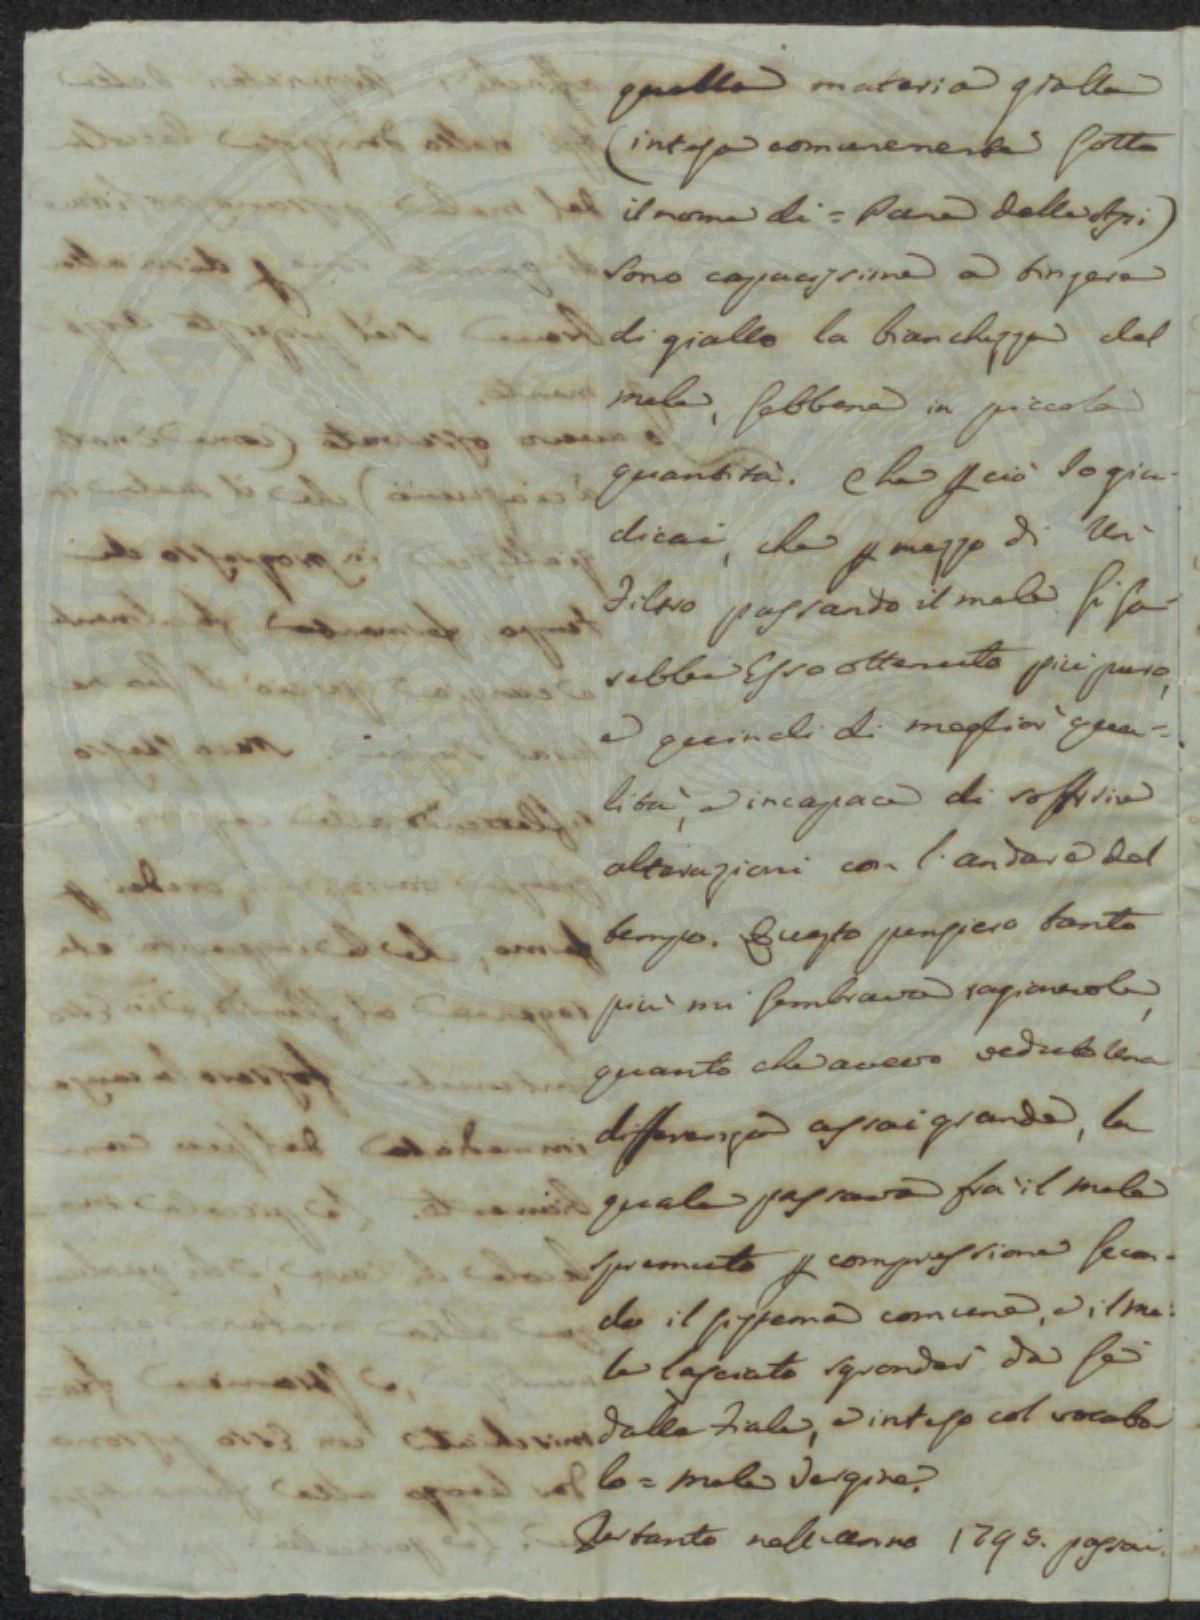 quella materia gialla
(intesa comunemente sotto
il nome di = Pane delle Api)
sono capacissime a tingere
di giallo la bianchezza del
mele, sebbene in piccola
quantità. Che p ciò Io giu-
dicai, che p mezzo di Un
Filtro passando il mele si sa-
rebbe Esso ottenuto più puro,
e quindi di meglior qua=
lità, e incapace di soffrire
alterazioni con l'andare del
tempo. Questo pensiero tanto
più mi sembrava ragionevole,
quanto che avevo veduto Una
differenza assai grande, la
quale passava frà il mele
spremuto p compressione secon-
do il sistema comune, e il me-
le lasciato sgrondar da se
dalle Fiale, e inteso col vocabo
lo = mele Vergine.
Pertanto nell'anno 1795. passai